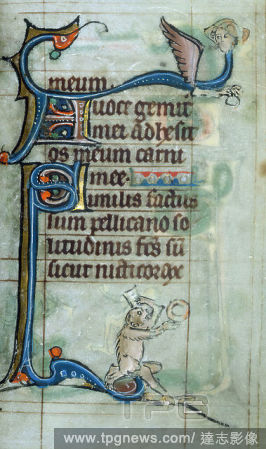 meum
A uoce gemit
mei adhesit
os meum carni
mee.
Similis factus
sum pellicano so
litudinis fcs sū
sicut nicticorax
TPG
www.tpgnews.com/ 達志影像